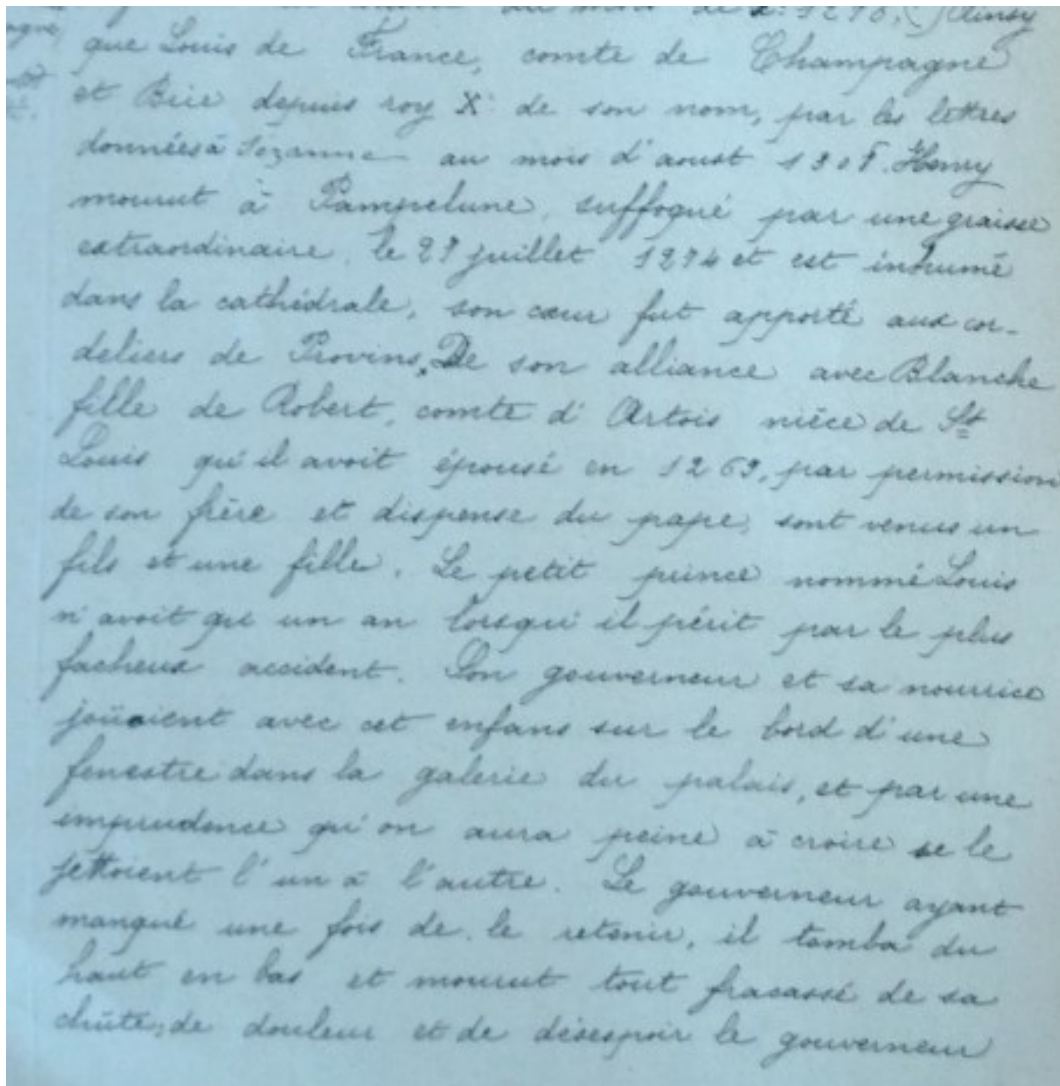 au mois de 1270, Ainsy
que Louis de France, comte de Champagne
et Brie depuis roy X de son nom, par les lettres
données à Sézanne au mois d'aoust 1308. Henry
mourut à Pampelune, suffoqué par une graisse
extraordinaire, le 27 juillet 1274 et est inhumé
dans la cathédrale, son cœur fut apporté aux cor-
deliers de Provins, De son alliance avec Blanche
fille de Robert, comte d'Artois nièce de St
Louis qu'il avoit épousé en 1269, par permission
de son frère et dispense du pape, sont venus un
fils et une fille. Le petit prince nommé Louis
n'avoit qu'un an lorsqu'il périt par le plus
facheux accident. Son gouverneur et sa nourrice
joüoient avec cet enfans sur le bord d'une
fenestre dans la galerie du palais, et par une
imprudence qu'on aura peine à croire se le
jettoient l'un à l'autre. Le gouverneur ayant
manqué une fois de le retenir, il tomba du
haut en bas et mourut tout fracassé de sa
chûte; de douleur et de désespoir le gouverneur